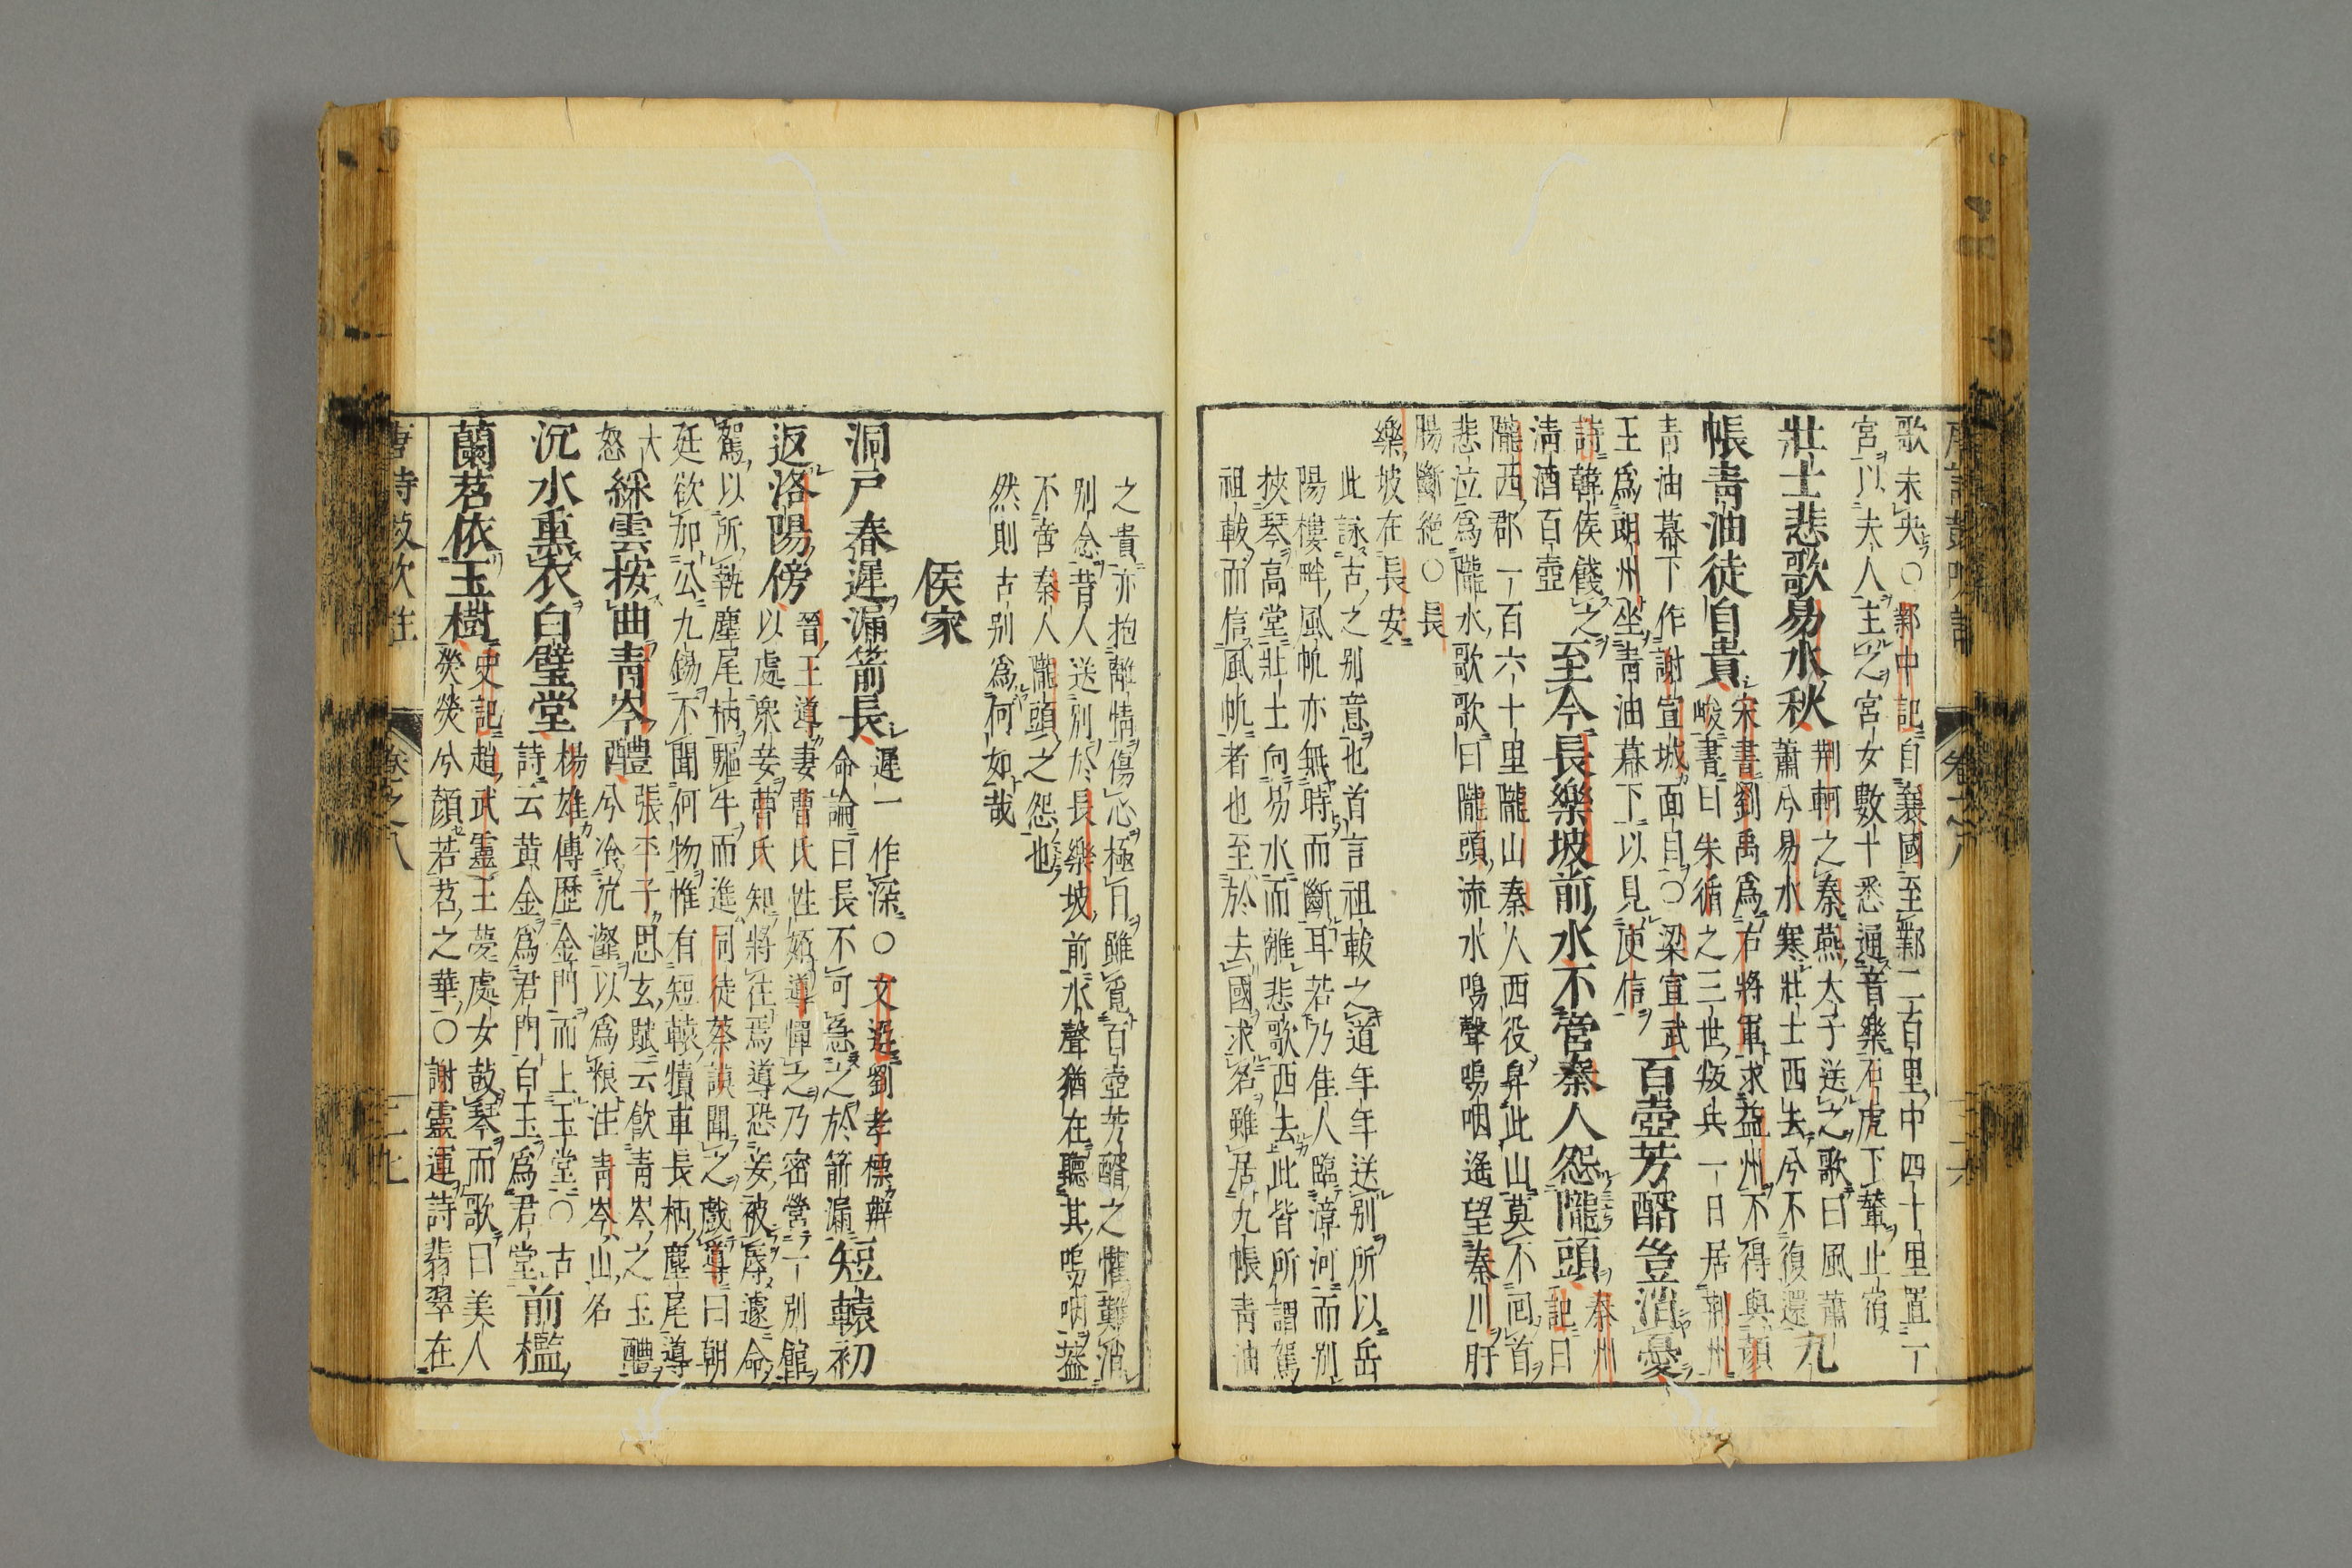 歌未央○鄴中記自襄國至鄴二百里中四十里置一
宮以夫人主之宮女數十悉通音樂石虎下輦止宿
壯士悲歌易水秋 荆軻之秦燕太子送之歌曰風蕭蕭兮易水寒壯士西去兮不復還 九
帳青油徒自貴 宋書劉禹爲右將軍求益州不得與顏峻書曰朱循之三世叛兵一日居荆州
青油幕下作謝宣城面目○梁宣武
王爲朗州坐青油幕下以見使信 百壺芳醑豈消憂
詩韓侯餞之清酒百壺 至今長樂坡前水不啻秦人怨隴頭 秦州記曰
隴西郡一百六十里隴山秦人西役昇此山莫不回首
悲泣爲隴水歌歌曰隴頭流水鳴聲嗚咽遙望秦川肝
腸斷絶○長
樂坡在長安
此詠古之别意也首言祖軷之道年年送别所以岳
陽樓畔風帆亦無時而斷耳若乃佳人臨漳河而别
挾琴高堂壯士向易水而離悲歌西去此皆所謂駕
祖軷而信風帆者也至於去國求名雖居九帳青油
之貴亦抱離情傷心極目雖寬百壺芳醑之懽難消
别念昔人送别於長樂坡前水聲猶在聽其嗚咽葢
不啻秦人隴頭之怨也
然則古别爲何如哉
侯家
洞戸春遲漏箭長 遲一作深○文選劉孝標辨命論曰長不可急之於箭漏 短轅初
返洛陽傍 晉王導妻曹氏性妬導憚之乃密營一别館以處衆妾曹氏知將往焉導恐妾被辱遽命
駕以所執塵尾柄驅牛而進司徒蔡謨聞之戲導曰朝
廷欲加公九錫不聞何物惟有短轅犢車長柄塵尾導
大怒 綵雲按曲青岑醴 張平子思玄賦云飲青岑之玉醴兮飡沆瀣以爲粻注青岑山名
沉水熏衣白璧堂 楊雄傳歷金門而上玉堂○古詩云黃金爲君門白玉爲君堂 前檻
蘭苕依玉樹 史記趙武靈王夢處女鼓琴而歌曰美人熒熒兮顏若苕之華○謝靈運詩翡翠在
唐詩鼓吹註 卷之八